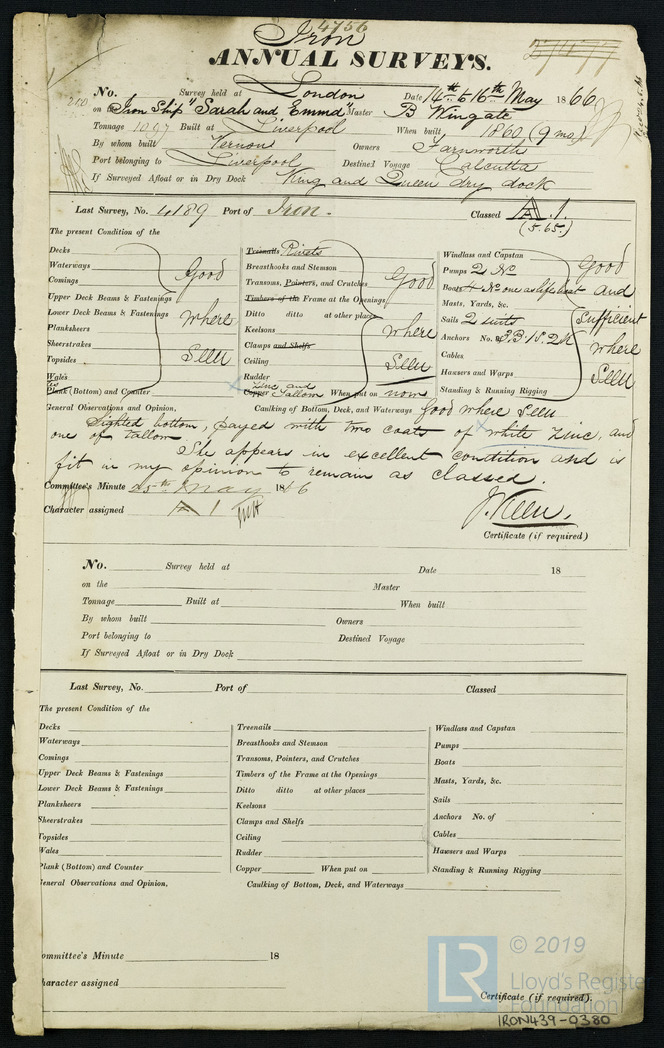 4756
Iron
ANNUAL SURVEYS.
No. Survey held at London Date 14th to 16th May 1866
on the Iron Ship "Sarah and Emma" Master B Wingate
Tonnage 1097 Built at Liverpool When built 1860 (9 mo.)
By whom built Vernon Owners Farnworth
Port belonging to Liverpool Destined Voyage Calcutta
If Surveyed Afloat or in Dry Dock King and Queen dry dock
Last Survey, No. 4189 Port of Iron. Classed A.1.
(5.65.)
The present Condition of the
Decks
Waterways
Comings
Upper Deck Beams & Fastenings
Lower Deck Beams & Fastenings
Planksheers
Sheerstrakes
Topsides
Wales
Plank (Bottom) and Counter
Good
where
Seen
Treenails Rivets
Breasthooks and Stemson
Transoms, Pointers, and Crutches
Timbers of the Frame at the Openings
Ditto ditto at other places
Keelsons
Clamps and Shelfs
Ceiling
Rudder
Zinc and
Copper Tallow When put on now
Good
where
Seen
Windlass and Capstan
Pumps 2 No
Boats 4 No one as lifeboat
Masts, Yards, &c.
Sails 2 suits
Anchors No. of 3B. 1S. 2K
Cables
Hawsers and Warps
Standing & Running Rigging
Good
and
sufficient
where
Seen
General Observations and Opinion. Caulking of Bottom, Deck, and Waterways Good where seen
Sighted bottom, payed with two coats of white zinc, and
one of tallow
She appears in excellent condition and is
fit in my opinion to remain as classed.
Committee's Minute 25th May 1866
Character assigned A 1
J. Keen.
Certificate (if required)
No. Survey held at Date 18
on the Master
Tonnage Built at When built
By whom built Owners
Port belonging to Destined Voyage
If Surveyed Afloat or in Dry Dock
Last Survey, No. Port of Classed
The present Condition of the
Decks
Waterways
Comings
Upper Deck Beams & Fastenings
Lower Deck Beams & Fastenings
Planksheers
Sheerstrakes
Topsides
Wales
Plank (Bottom) and Counter
Treenails
Breasthooks and Stemson
Transoms, Pointers, and Crutches
Timbers of the Frame at the Openings
Ditto ditto at other places
Keelsons
Clamps and Shelfs
Ceiling
Rudder
Copper When put on
Windlass and Capstan
Pumps
Boats
Masts, Yards, &c.
Sails
Anchors No. of
Cables
Hawsers and Warps
Standing & Running Rigging
General Observations and Opinion. Caulking of Bottom, Deck, and Waterways
ommittee's Minute 18
haracter assigned
Certificate (if required).
LR
© 2019
Lloyd's Register
Foundation
IRON439-0380